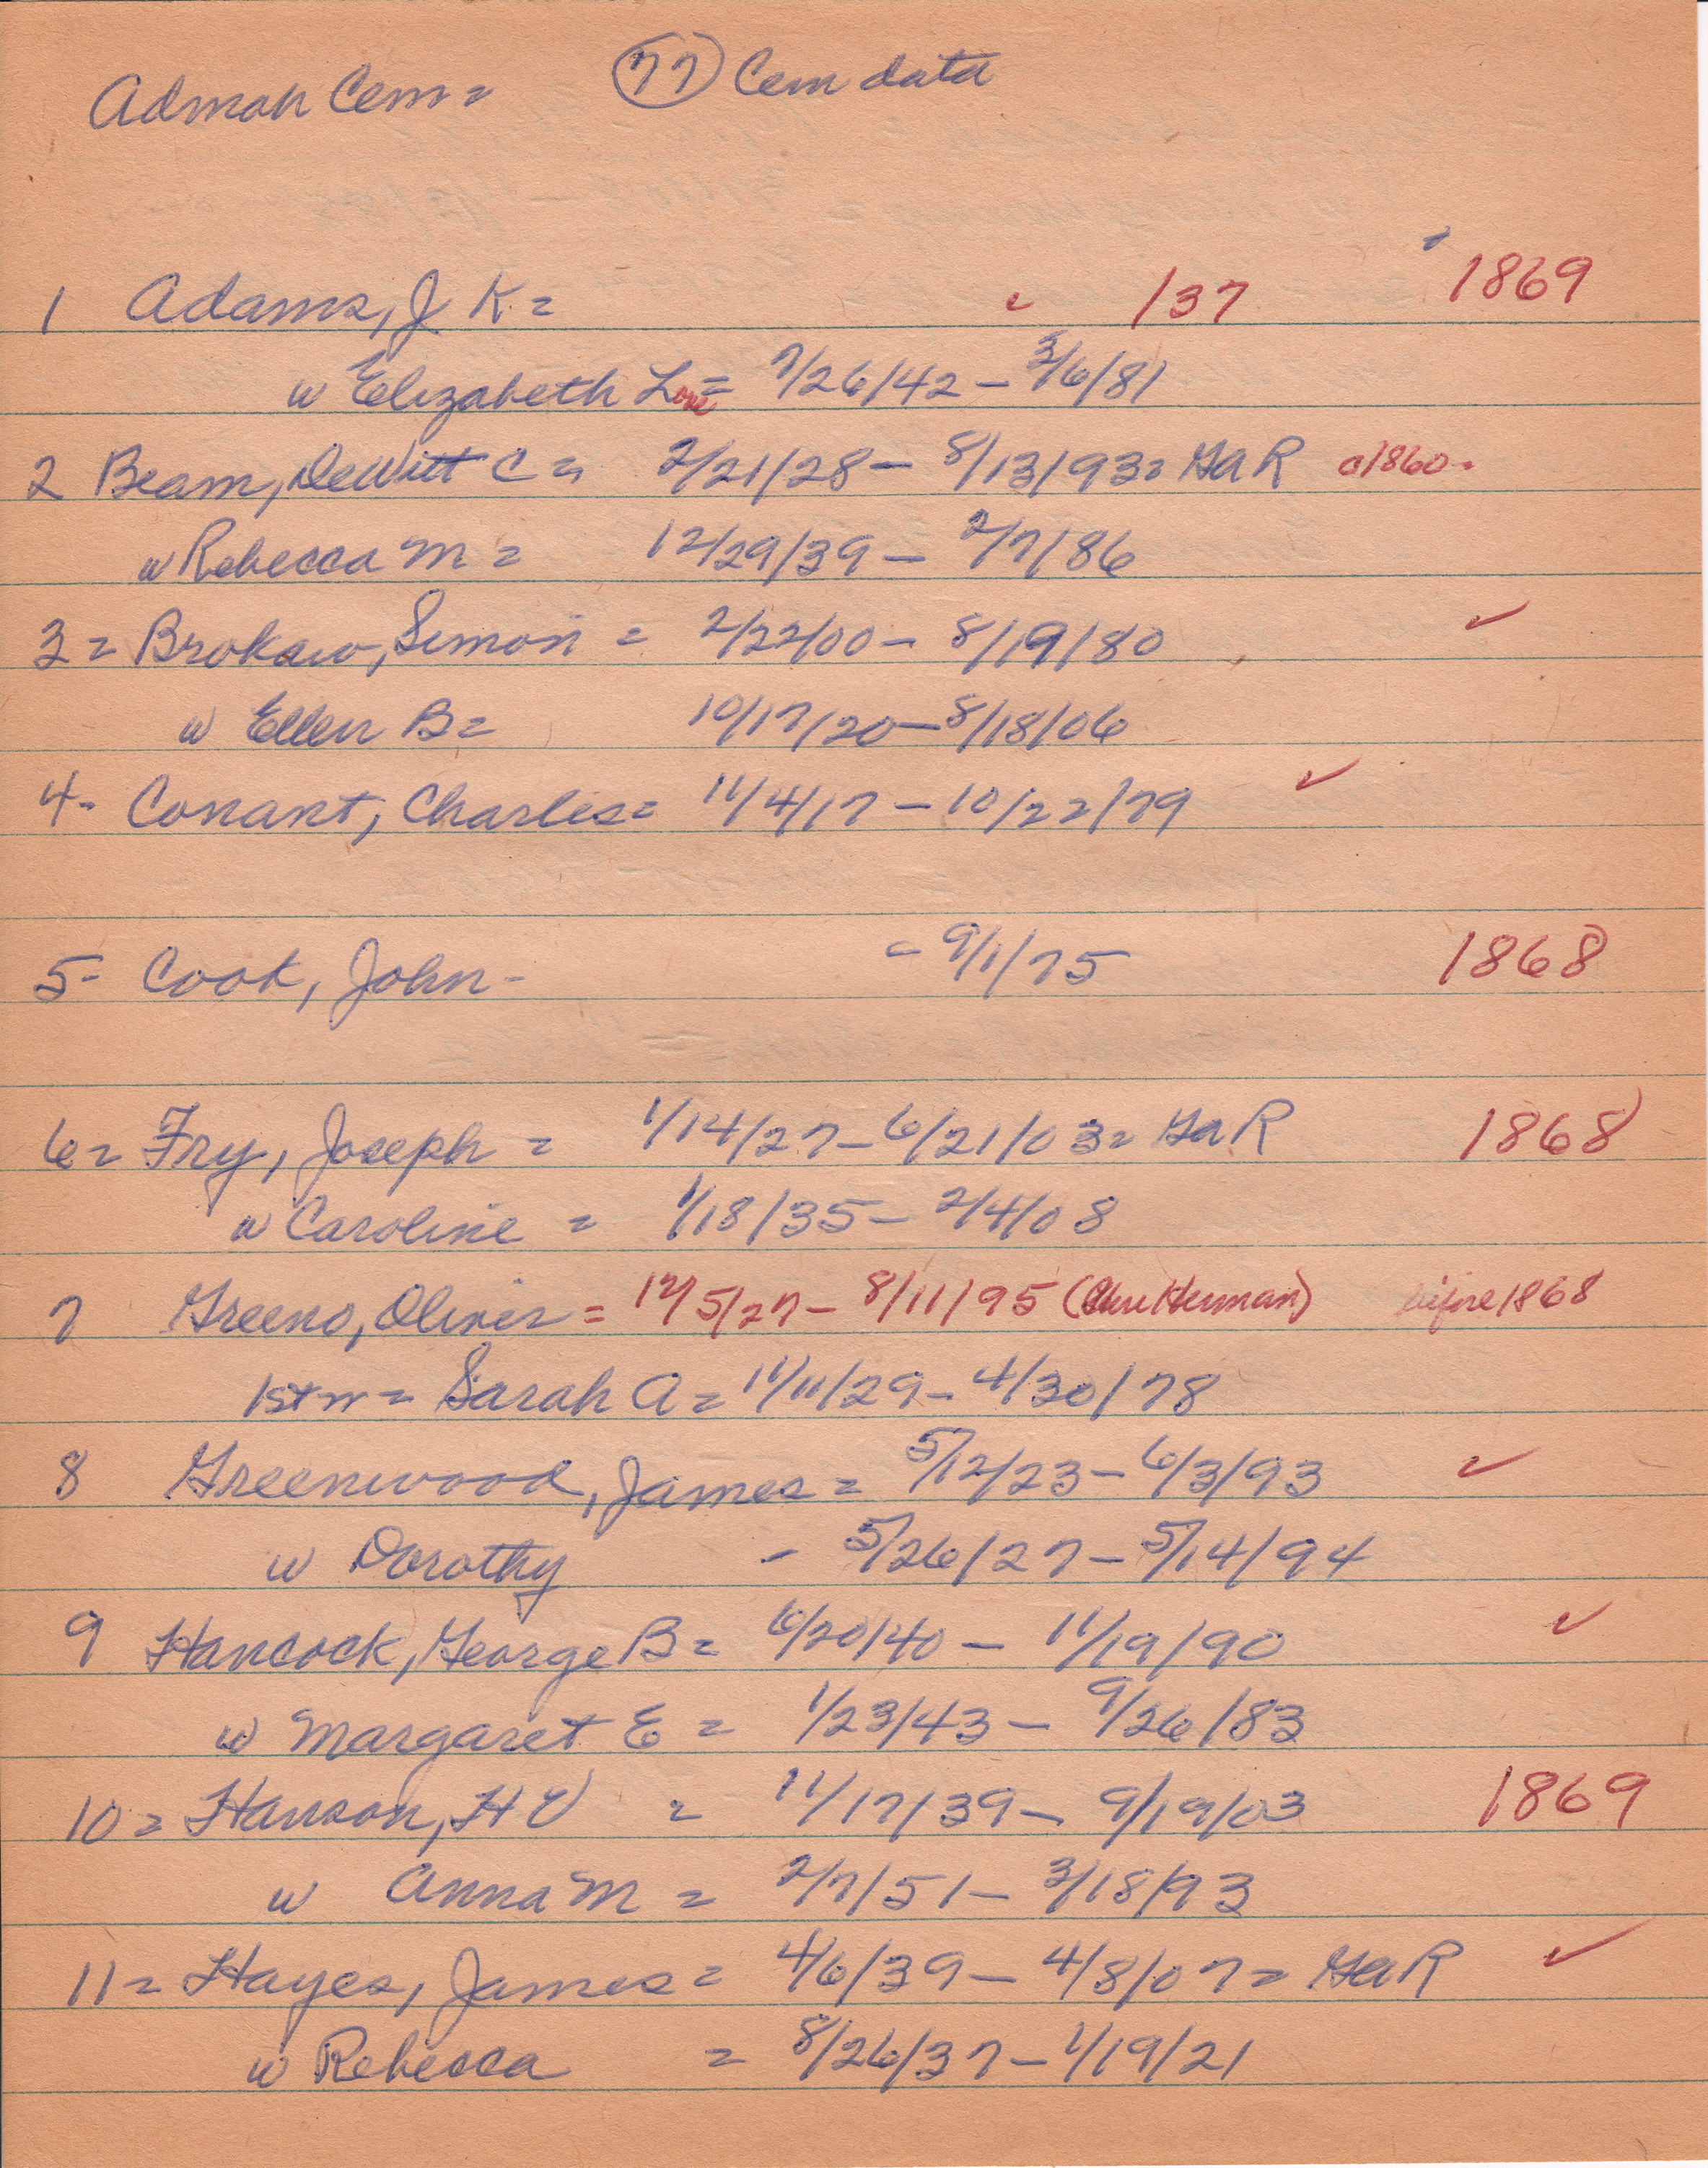 Admah Cem = (77) Cem data
1 Adams, J K = ✓ 137 1869
w Elizabeth Love = 7/26/42 - 3/6/81
2 Beam, DeWitt C = 2/21/28 - 8/13/93 = GaR c1860 -
w Rebecca M = 12/29/39 - 2/7/86
3 = Brokaw, Simon = 2/22/00 - 8/19/80 ✓
w Ellen B = 10/17/20 - 8/18/06
4 - Conant, Charles = 11/4/17 - 10/22/79 ✓
5 - Cook, John - - 9/1/75 1868
6 = Fry, Joseph = 1/14/27 - 6/21/03 = GaR 1868
w Caroline = 1/18/35 - 2/4/08
7 Greeno, Oliver = 12/5/27 - 8/11/95 ( Herman) before 1868
1st m = Sarah A = 11/11/29 - 4/30/78
8 Greenwood, James = 5/12/23 - 6/3/93 ✓
w Dorothy - 5/26/27 - 5/14/94
9 Hancock, George B = 6/20/40 - 11/19/90 ✓
w Margaret E = 1/23/43 - 9/26/83
10 = Hanson, H V = 11/17/39 - 9/19/03 1869
w Anna M = 2/7/51 - 3/18/93
11 = Hayes, James = 4/6/39 - 4/8/07 = GaR ✓
w Rebecca = 8/26/37 - 1/19/21